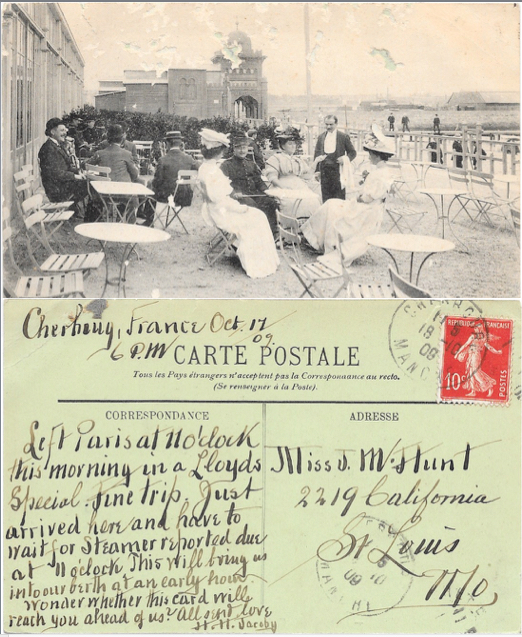 Cherbourg, France Oct. 17
09.
6 P.M
CARTE POSTALE
Tous les Pays étrangers n'acceptent pas la Correspondance au recto.
(Se renseigner à la Poste).
CHERBOURG
18
09
MANCHE
RÉPUBLIQUE FRANÇAISE
10c
POSTES
CORRESPONDANCE
Left Paris at 11 o'clock
this morning in a Lloyds
Special. Fine trip. Just
arrived here and have to
wait for Steamer reported due
at 11 o'clock. This will bring us
into our berth at an early hour.
Wonder whether this card will
reach you ahead of us? All send love
H. H. Jacoby
ADRESSE
Miss J. McHunt
2219 California
St Louis
Mo,
09